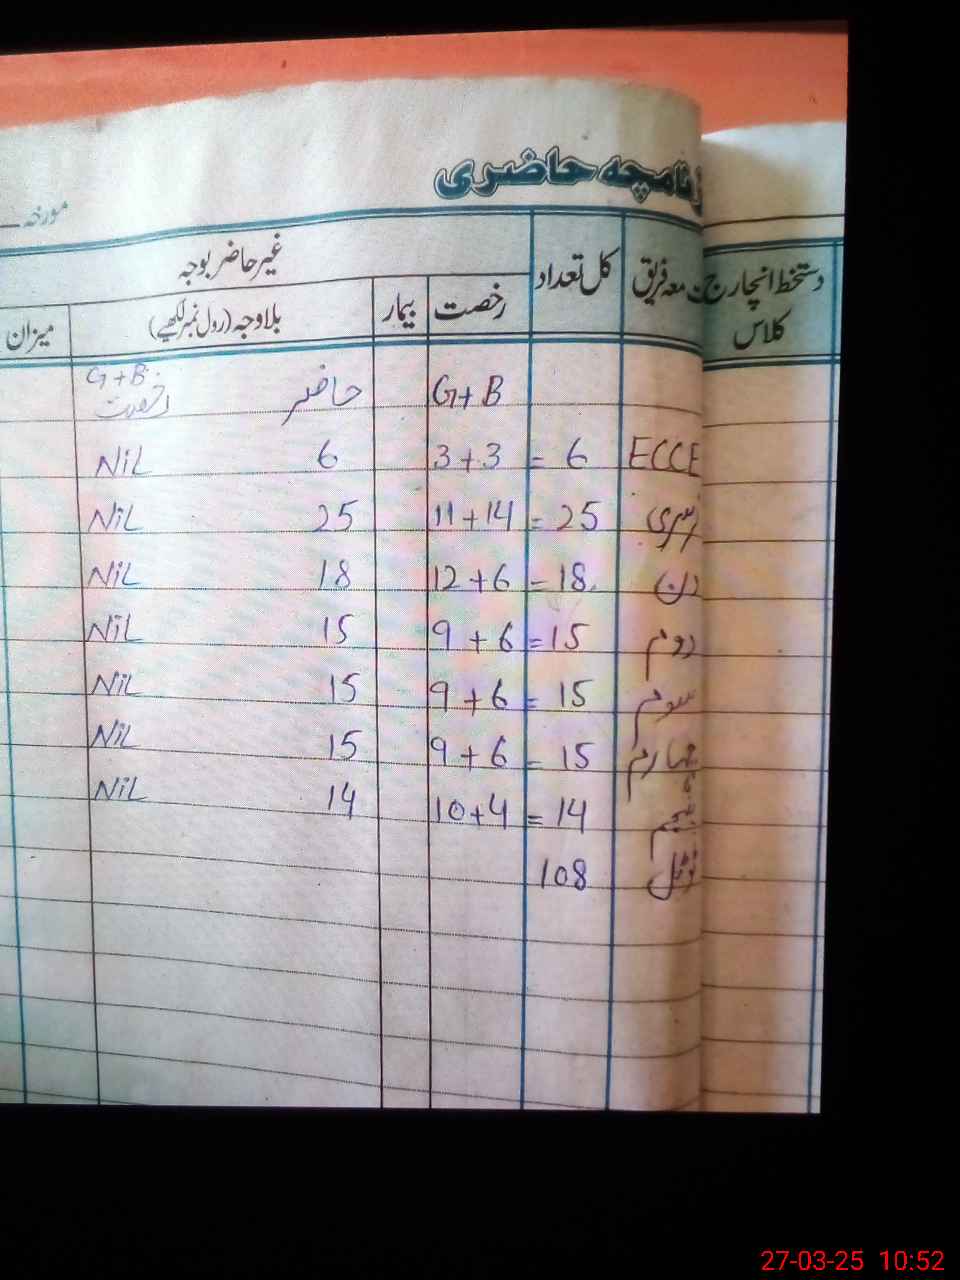 روزنامچہ حاضری
مورخہ
دستخط انچارج کلاس
معہ فریق کل تعداد غیر حاضر بوجہ
رخصت بیمار بلاوجہ (رول نمبر لکھیے) میزان
G+B حاضر G+B رخصت
ECCE 6 = 3+3 6 NiL
نرسری 25 = 11+14 25 NiL
18 = 12+6 18 NiL
دوم 15 = 9+6 15 NiL
سوم 15 = 9+6 15 NiL
چہارم 15 = 9+6 15 NiL
پنجم 14 = 10+4 14 NiL
ٹوٹل 108
27-03-25 10:52